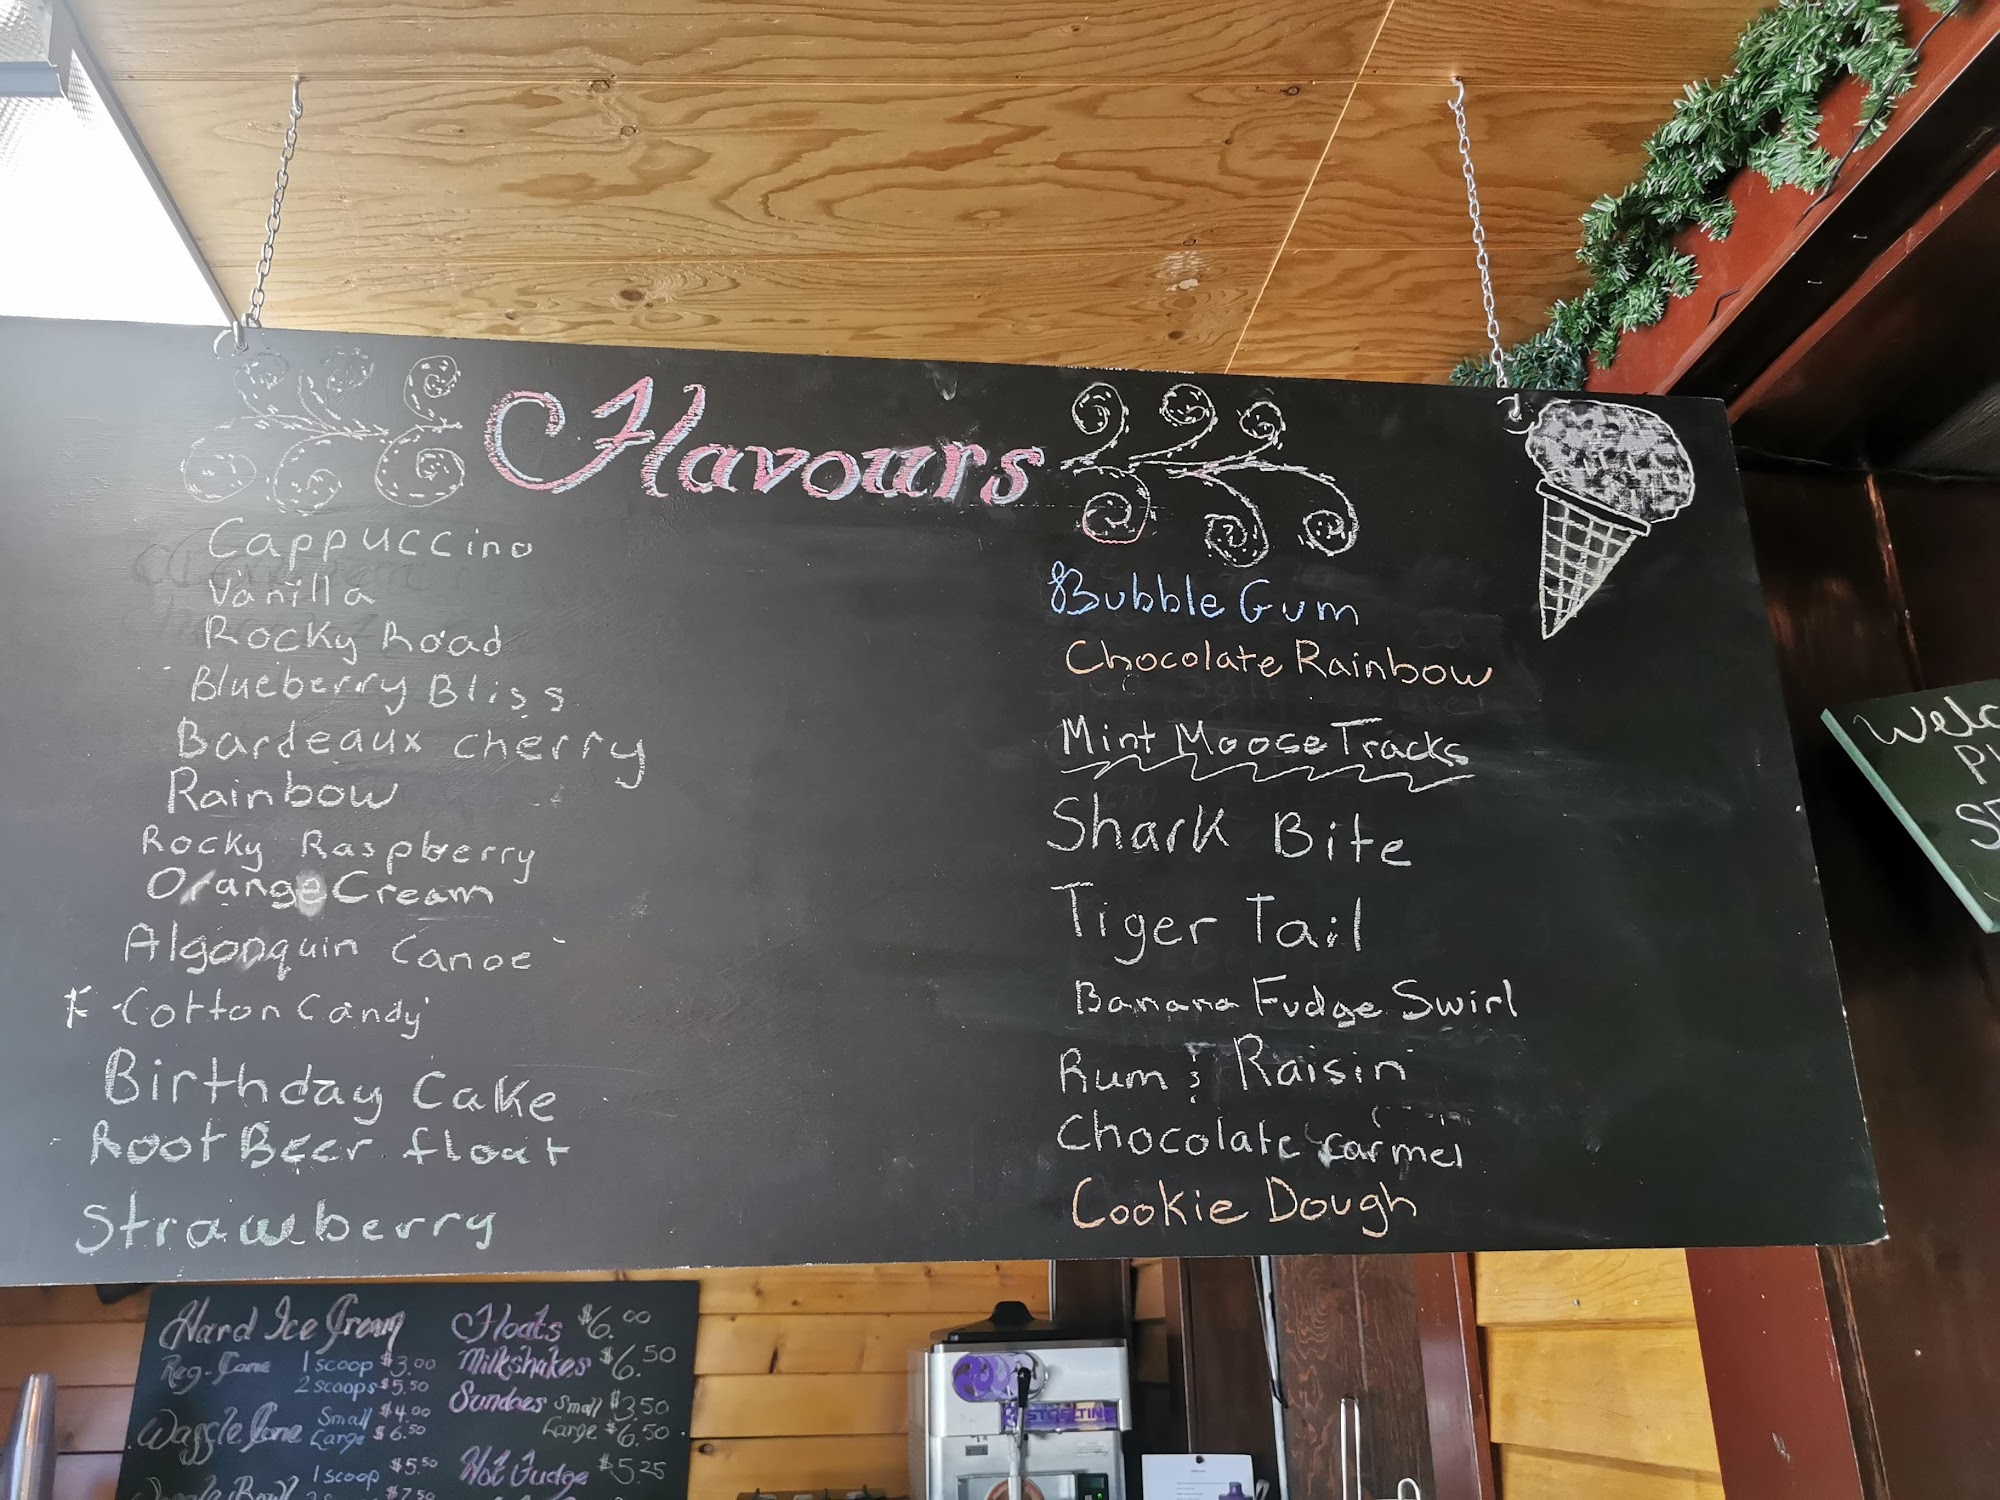 Flavours
Cappuccino
Vanilla
Rocky Road
Blueberry Bliss
Bardeaux cherry
Rainbow
Rocky Raspberry
Orange Cream
Algonquin Canoe
Cotton Candy
Birthday Cake
Root Beer float
Strawberry
Bubble Gum
Chocolate Rainbow
Mint Moose Tracks
Shark Bite
Tiger Tail
Banana Fudge Swirl
Rum & Raisin
Chocolate carmel
Cookie Dough
Hard Ice Cream
Reg. Cone 1 scoop $3.00
2 scoops $5.50
Waffle Cone Small $4.00
Large $6.50
1 scoop $5.50
$7.50
Floats $6.00
Milkshakes $6.50
Sundaes Small $3.50
Large $6.50
Hot Fudge $5.25